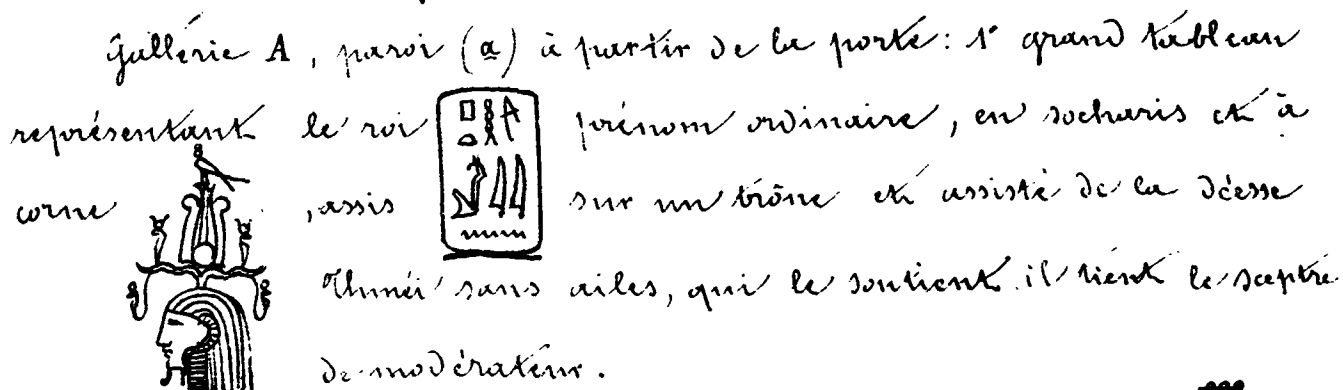 Gallérie A, paroi (a) à partir de la porte: 1r grand tableau
représentant le roi prénom ordinaire, en socharis et à
corne , assis sur un trône et assisté de la déesse
Thméi sans ailes, qui le soutient. il tient le sceptre
de modérateur.